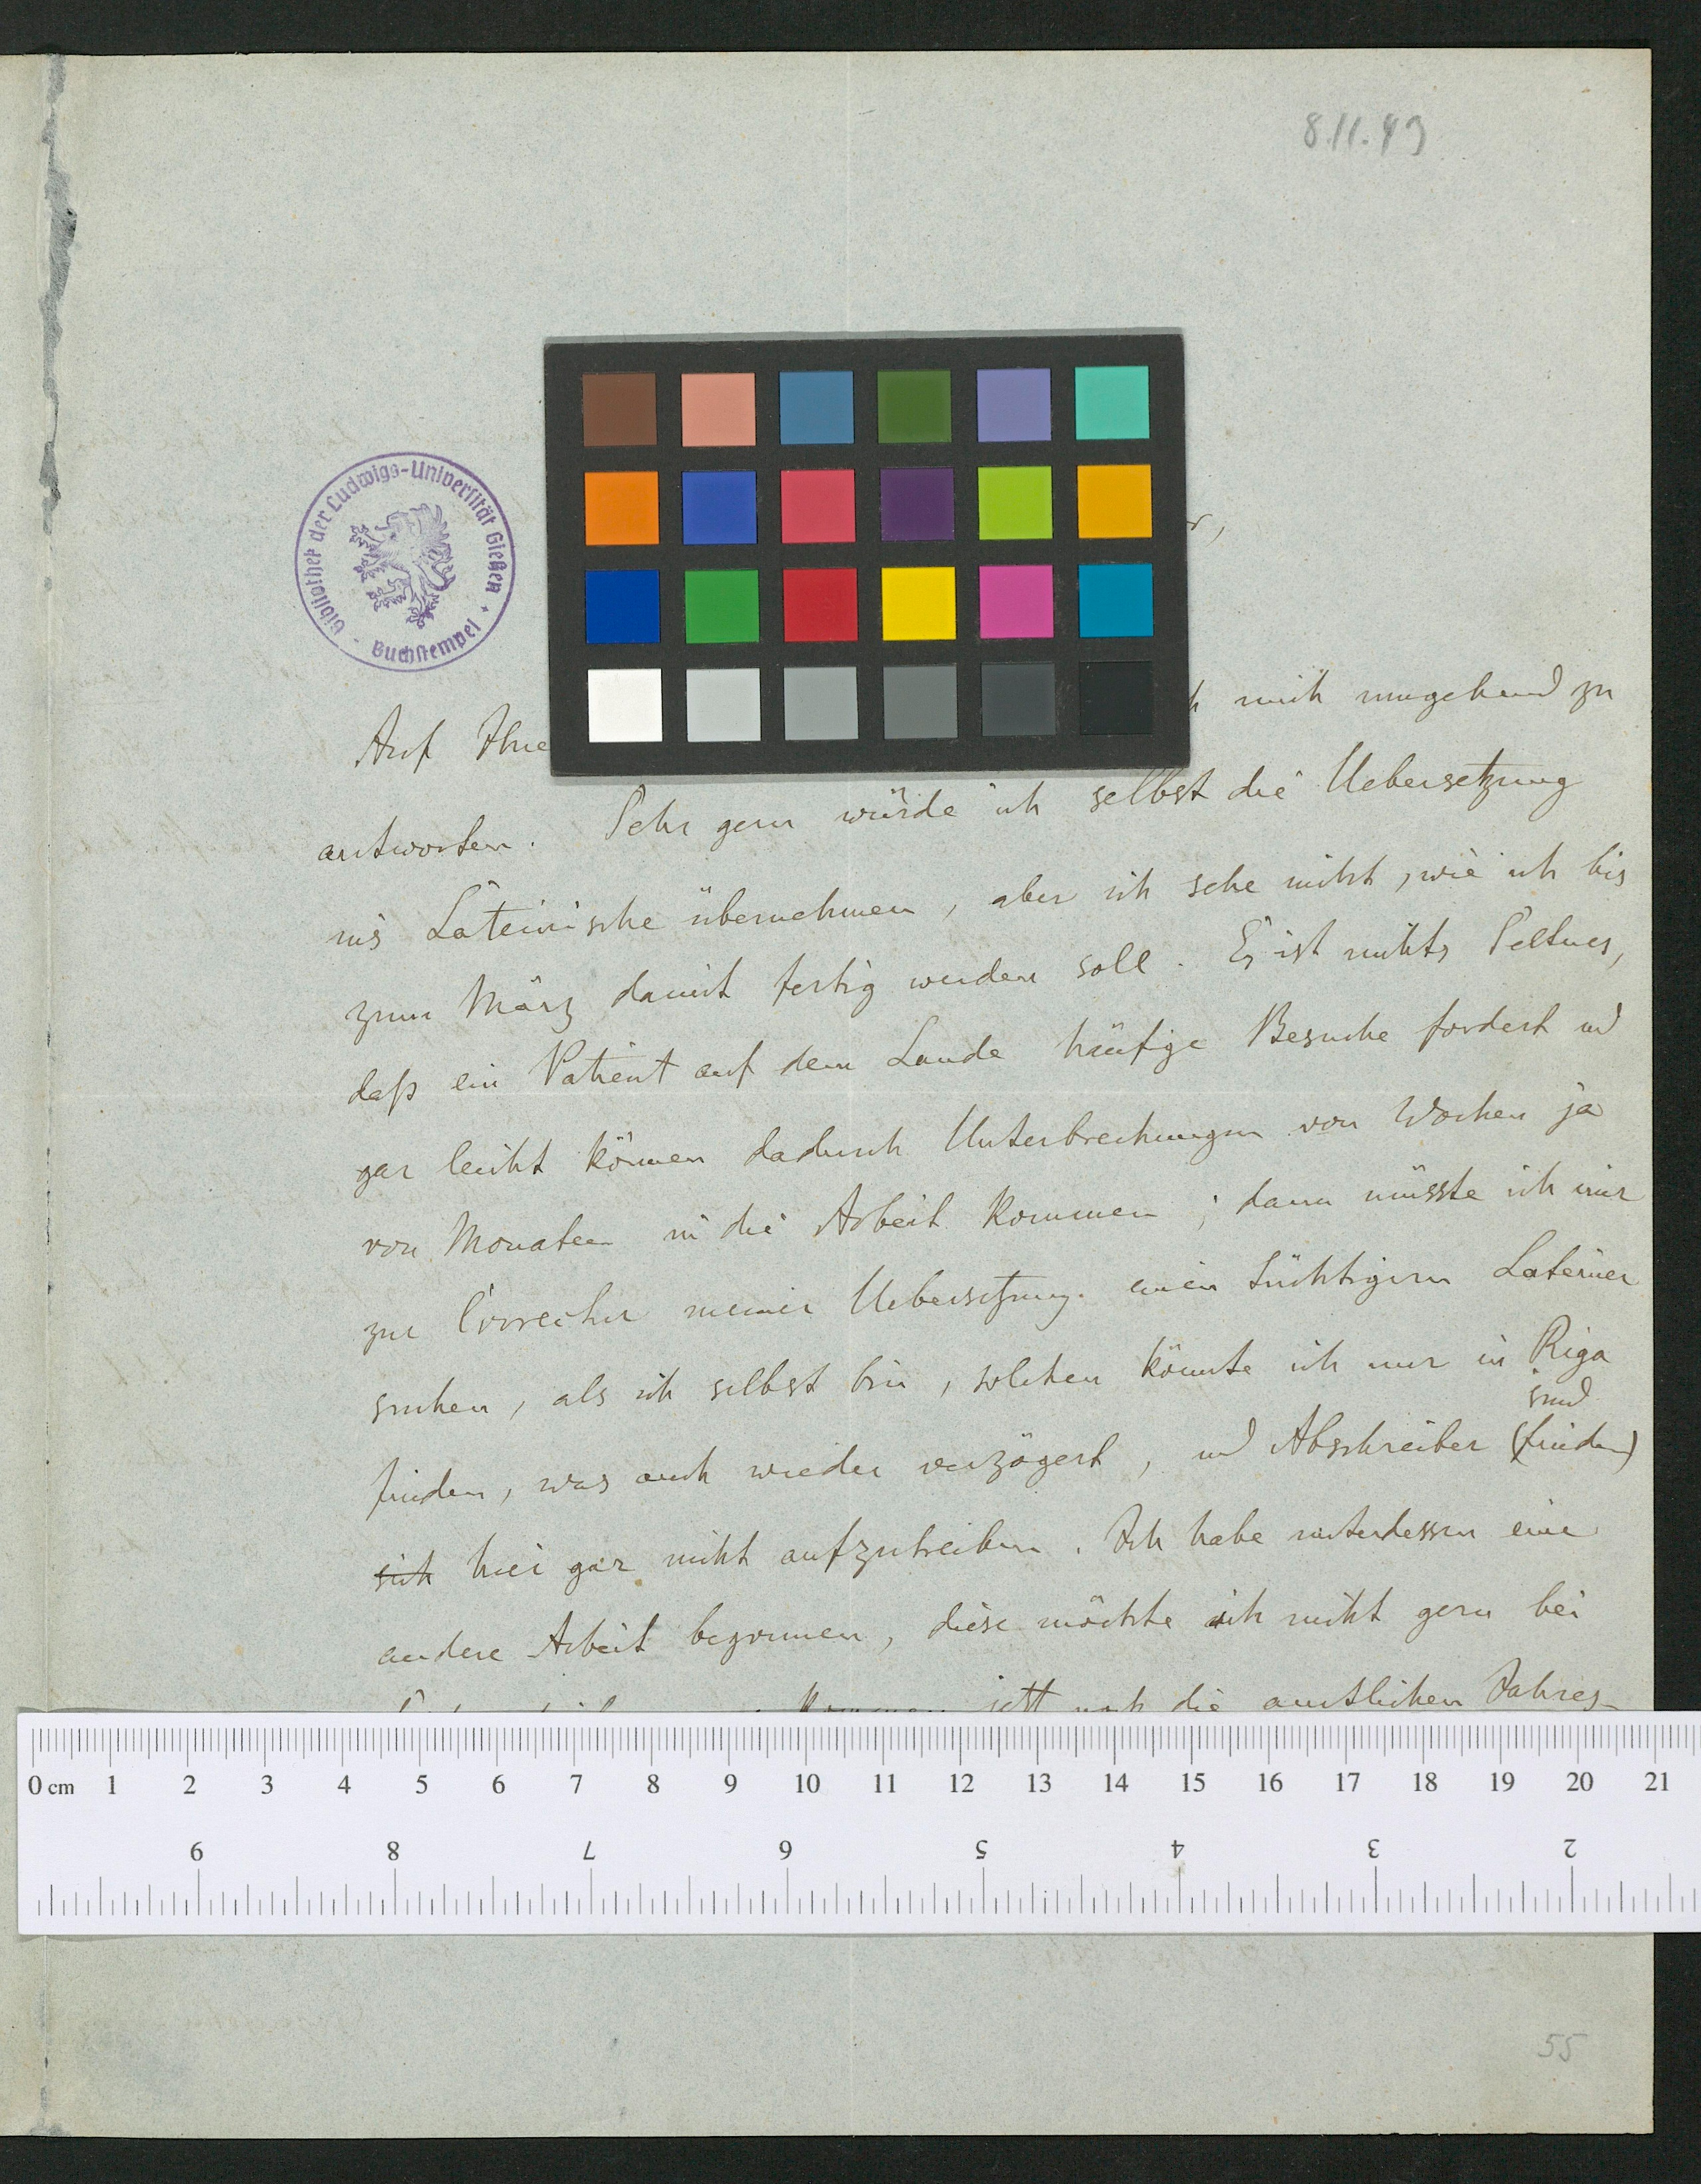 8.11.49
Bibliothek der Ludwigs-Universität Gießen
Buchstempel
r,
Auf Ihre h mich umgehend zu
antworten. Sehr gern würde ich selbst die Uebersetzung
ins Lateinische übernehmen, aber ich sehe nicht, wie ich bis
zum März damit fertig werden soll. Es ist nichts Seltnes,
daß ein Patient auf dem Lande häufige Besuche fordert und
gar leicht können dadurch Unterbrechungen von Wochen ja
von Monaten in die Arbeit kommen; dann müsste ich mir
zur Correctur meiner Uebersetzung einen tüchtigern Lateiner
suchen, als ich selbst bin, solchen könnte ich nur in Riga
sind
finden, was auch wieder verzögert, und Abschreiber (finden)
sich hier gar nicht aufzutreiben. Ich habe unterdessen eine
andere Arbeit begonnen, diese möchte ich nicht gern bei
kommen jetzt noch die amtlichen Jahres-
0 cm 1 2 3 4 5 6 7 8 9 10 11 12 13 14 15 16 17 18 19 20 21
9 8 7 6 5 4 3 2
55